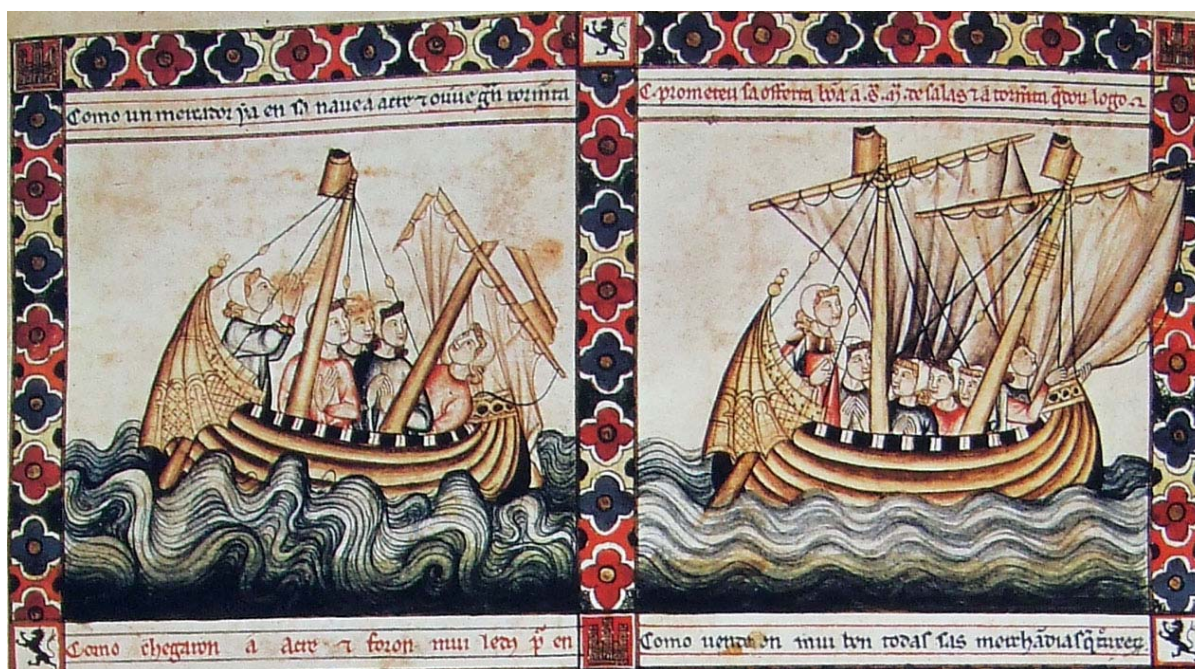 Como un mercador ya en sa naue a acre ⁊ ouue gñ tormẽta
C. prometeu sa offerta bõa a .S. M. de salas ⁊ a tormẽta qdou logo ⁊
Como chegaron a acre ⁊ foron mui led p en
Como uenderon mui ben todas sas merchãdias